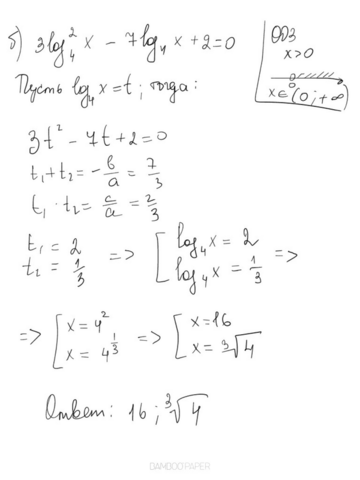 б) 3log₄²x − 7log₄x + 2 = 0
ОДЗ
x>0
0
x∈(0; +∞)
Пусть log₄x = t, тогда:
3t² − 7t + 2 = 0
t₁ + t₂ = −b/a = 7/3
t₁ · t₂ = c/a = 2/3
t₁ = 2
t₂ = 1/3
=> [ log₄x = 2
log₄x = 1/3 =>
=> [ x = 4²
x = 4^(1/3)
=> [ x = 16
x = ³√4
Ответ: 16; ³√4